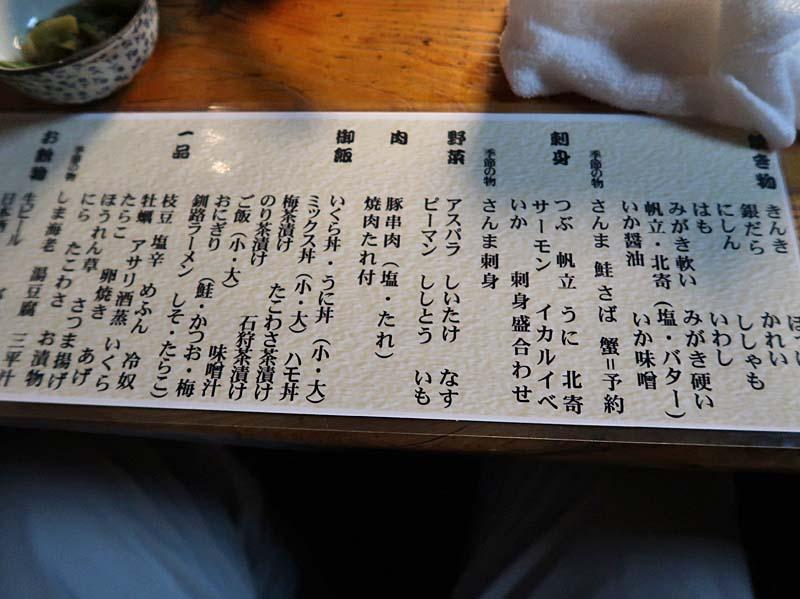 き物
きんき
銀だら　かれい
にしん　ししゃも
はも　いわし
みがき軟い　みがき硬い
帆立・北寄（塩・バター）
いか醤油　いか味噌
季節の物
さんま　鮭　さば　蟹＝予約
刺身
つぶ　帆立　うに　北寄
サーモン　イカルイベ
いか　刺身盛合わせ
季節の物
さんま刺身
野菜
アスパラ　しいたけ　なす
ピーマン　ししとう　いも
肉
豚串肉（塩・たれ）
焼肉たれ付
御飯
いくら丼・うに丼（小・大）
ミックス丼（小・大）ハモ丼
梅茶漬け　たこわさ茶漬け
のり茶漬け　石狩茶漬け
ご飯（小・大）　味噌汁
おにぎり（鮭・かつお・梅
釧路ラーメン　しそ・たらこ）
一品
枝豆　塩辛　めふん　冷奴
牡蠣　アサリ酒蒸　いくら
たらこ　卵焼き　あげ
ほうれん草　さつま揚げ
にら　たこわさ　お漬物
しま海老　湯豆腐　三平汁
季節の物
お飲物
生ビール
日本酒